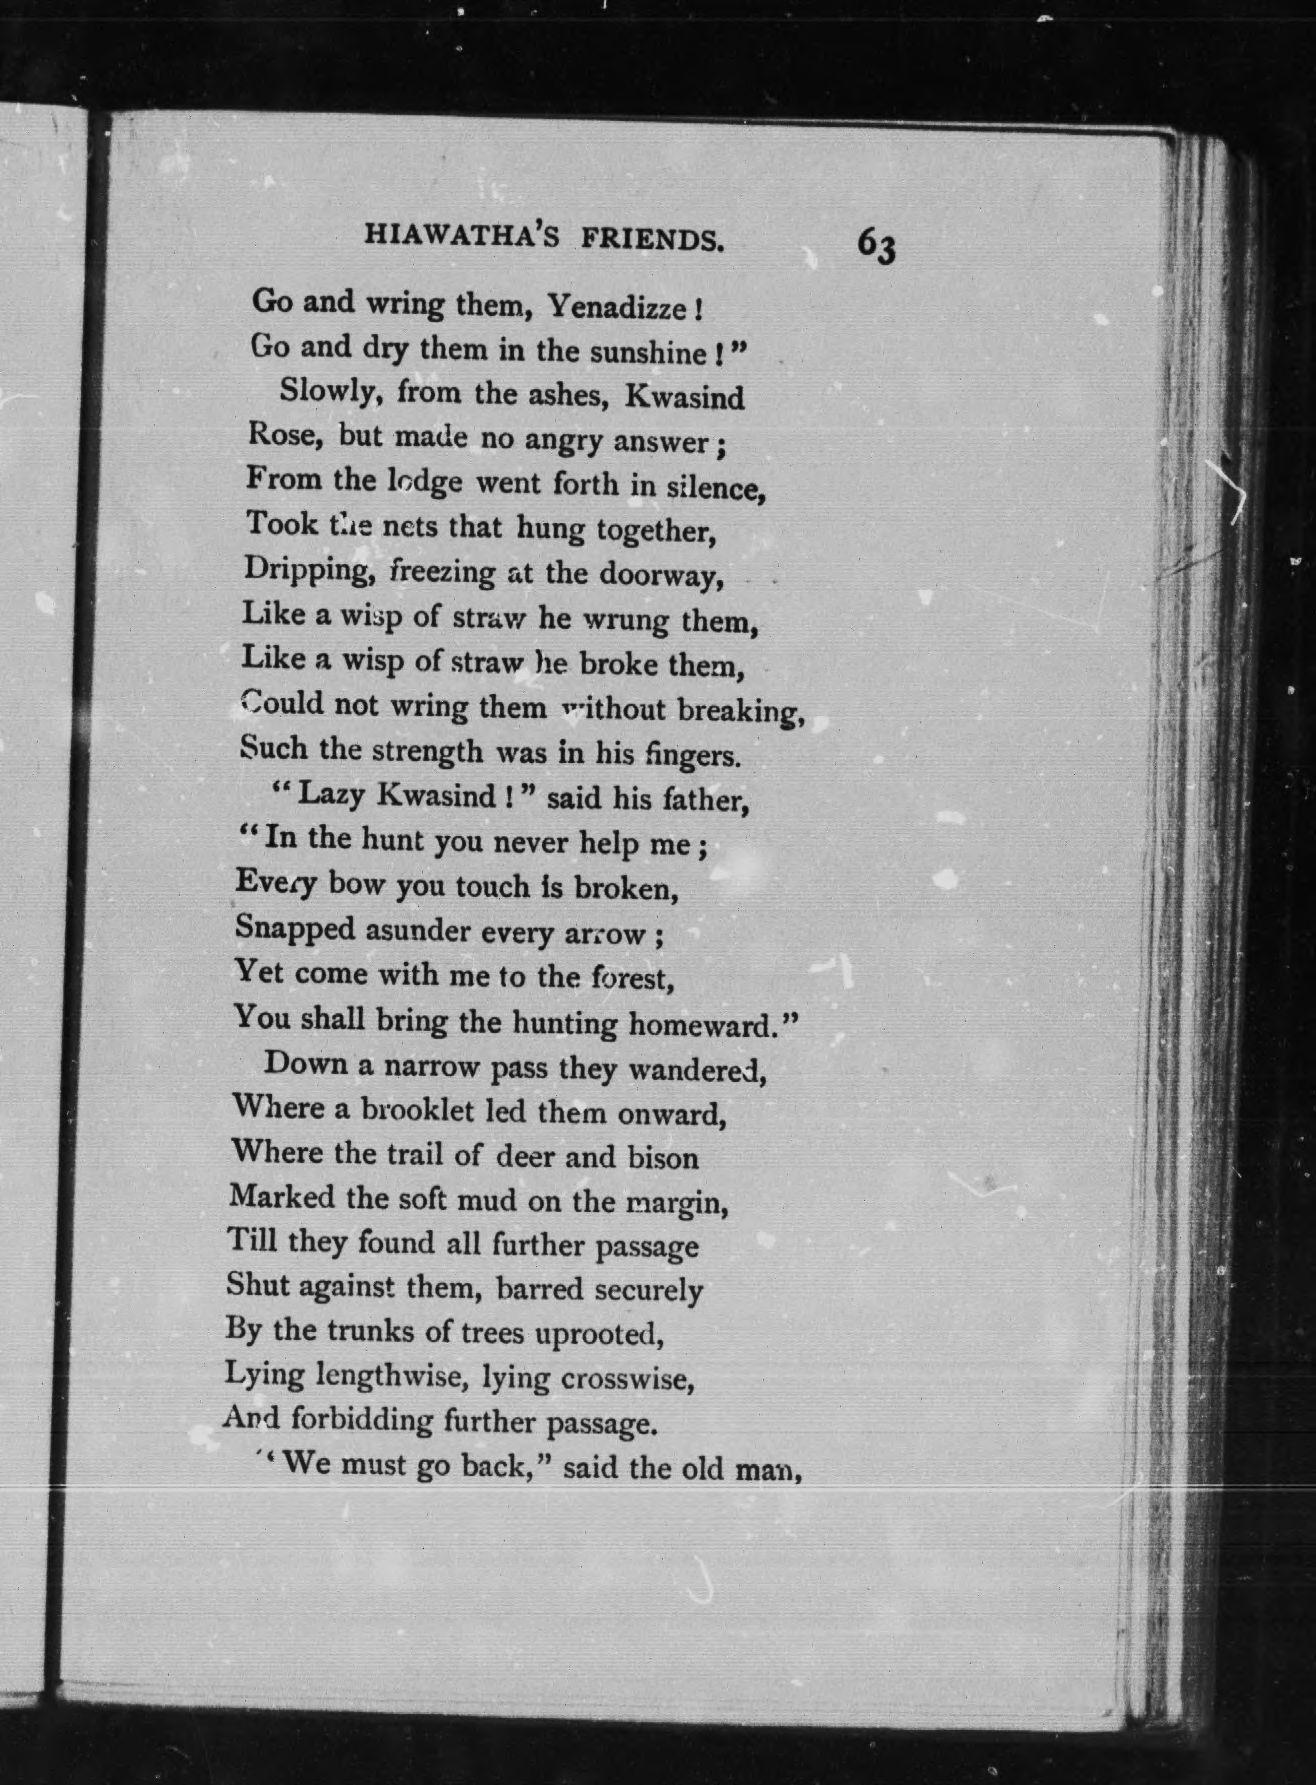 HIAWATHA'S FRIENDS. 63
Go and wring them, Yenadizze !
Go and dry them in the sunshine ! ”
Slowly, from the ashes, Kwasind
Rose, but made no angry answer ;
From the lodge went forth in silence,
Took the nets that hung together,
Dripping, freezing at the doorway,
Like a wisp of straw he wrung them,
Like a wisp of straw he broke them,
Could not wring them without breaking,
Such the strength was in his fingers.
“ Lazy Kwasind ! ” said his father,
“ In the hunt you never help me ;
Every bow you touch is broken,
Snapped asunder every arrow ;
Yet come with me to the forest,
You shall bring the hunting homeward.”
Down a narrow pass they wandered,
Where a brooklet led them onward,
Where the trail of deer and bison
Marked the soft mud on the margin,
Till they found all further passage
Shut against them, barred securely
By the trunks of trees uprooted,
Lying lengthwise, lying crosswise,
And forbidding further passage.
“ We must go back,” said the old man,